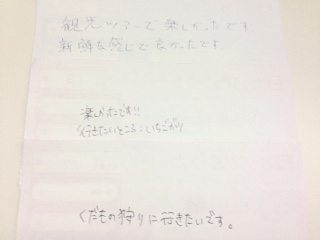 観光ツアーで楽しかったです
新鮮な感じで良かったです
楽しかったです!!
行きたいところ:いちごがり
くだもの狩りに行きたいです。